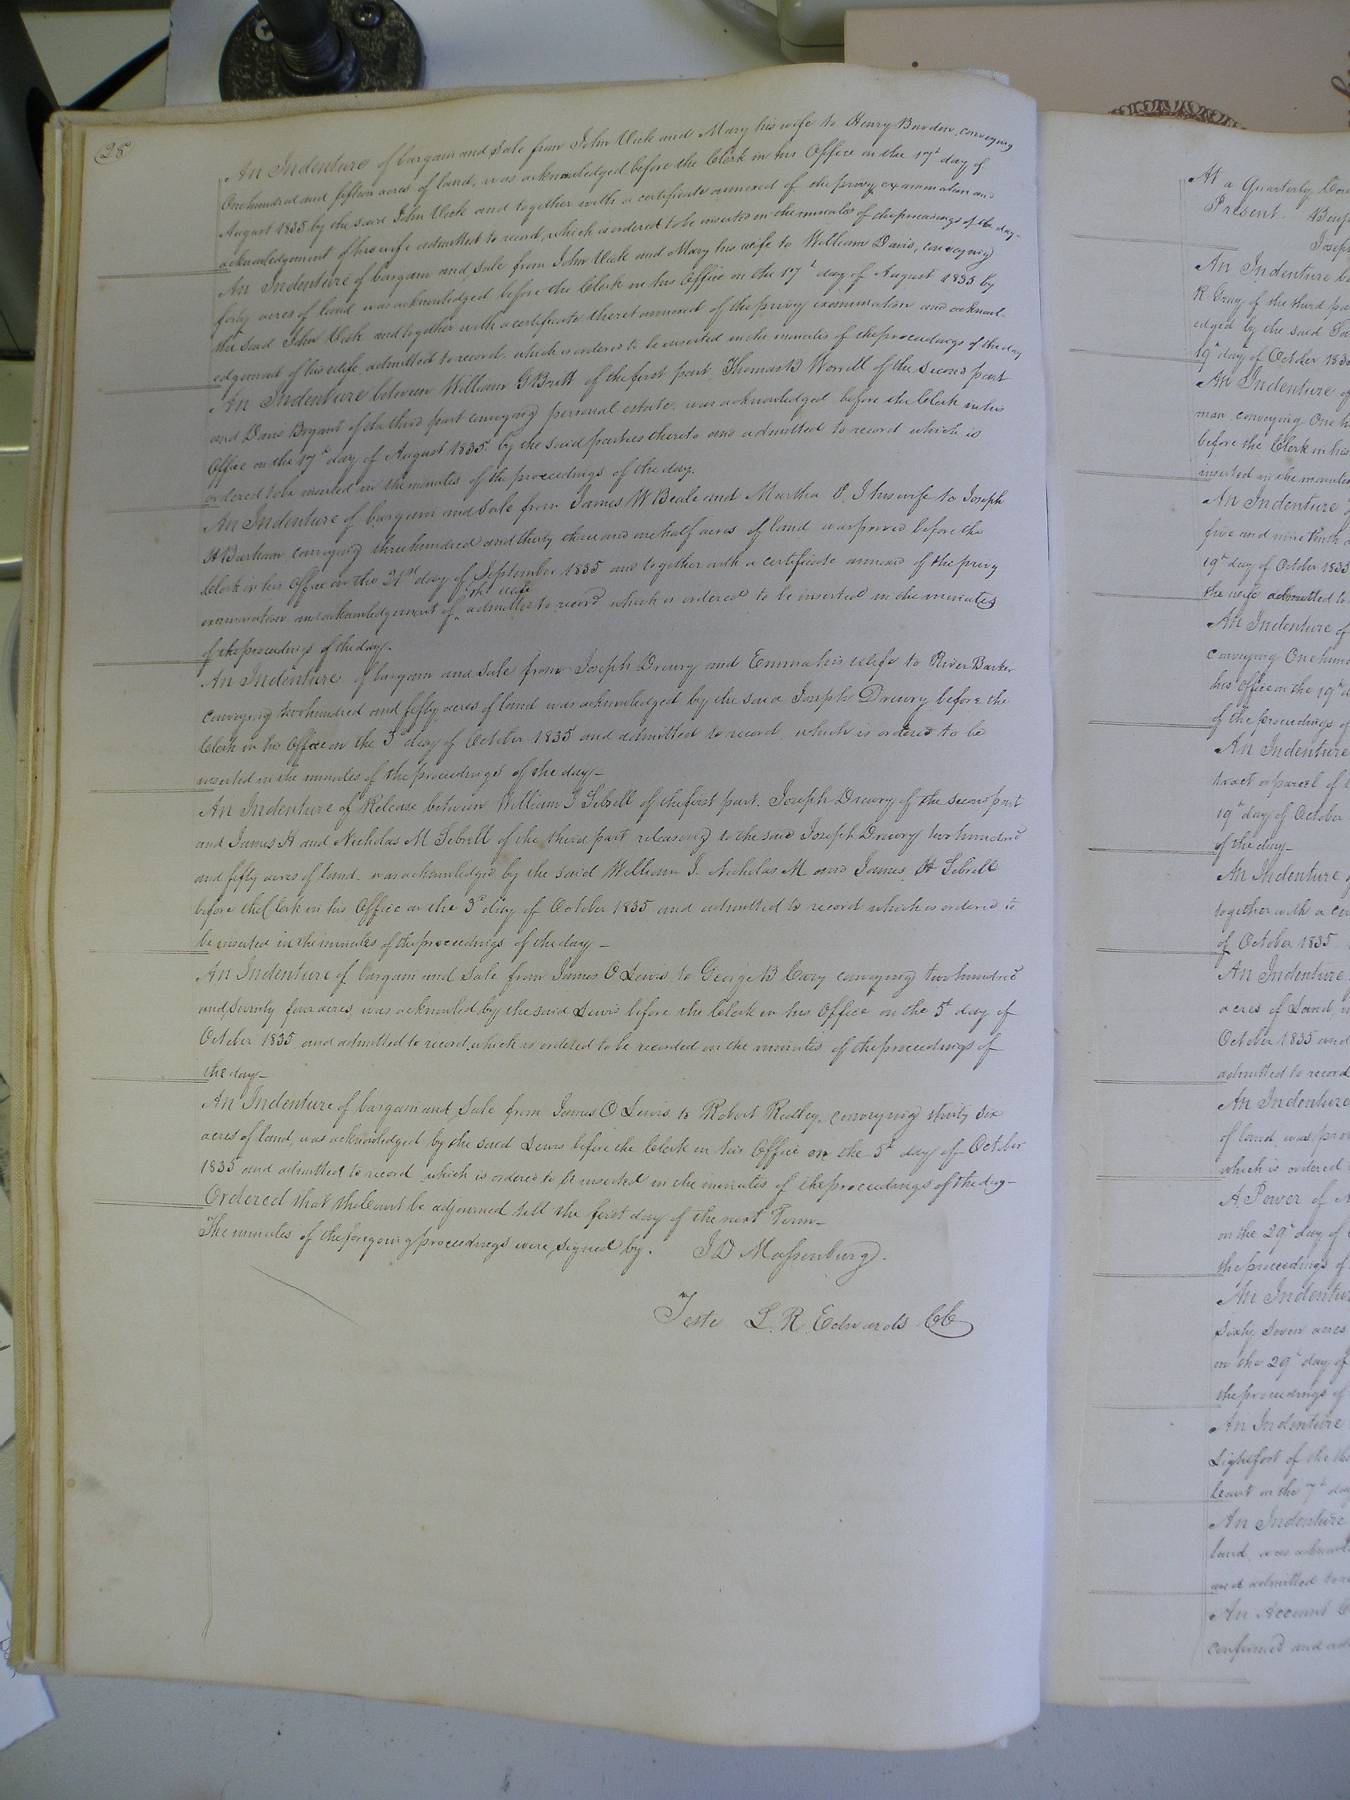 28
An Indenture of bargain and Sale from John Vick and Mary his wife to Henry Bowdon, conveying
One hundred and fifteen acres of land, was acknowledged before the Clerk in his Office on the 17t day of
August 1835 by the said John Vick and together with a certificate annexed of the privy examination and
acknowledgement of his wife admitted to record, which is ordered to be inserted in the minutes of the proceedings of the day-
An Indenture of bargain and sale from John Vick and Mary his wife to William Davis, conveying
forty acres of land was acknowledged before the Clerk in his Office on the 17t day of August 1835 by
the said John Vick and together with a certificate thereto annexed of the privy examination and acknowl-
edgement of his wife admitted to record, which is ordered to be inserted in the minutes of the proceedings of the day
An Indenture between William G Britt of the first part, Thomas B Worrell of the Second part
and Davis Bryant of the third part conveying personal estate, was acknowledged before the Clerk in his
Office on the 17t day of August 1835 by the said parties thereto and admitted to record which is
ordered to be inserted in the minutes of the proceedings of the day.
An Indenture of bargain and Sale from James W Beale and Martha his wife to Joseph
H Barham conveying three hundred and thirty three and one half acres of land was proved before the
Clerk in his Office on the 21st day of September 1835 and together with a certificate annexed of the privy
examination and acknowledgement of the wife admitted to record which is ordered to be inserted in the minutes
of the proceedings of the day-
An Indenture of bargain and Sale from Joseph Drewry and Emma his wife to River Barker
conveying two hundred and fifty acres of land was acknowledged by the said Joseph Drewry before the
Clerk in his Office on the 3d day of October 1835 and admitted to record, which is ordered to be
inserted in the minutes of the proceedings of the day-
An Indenture of Release between William J Sebrell of the first part. Joseph Drewry of the second part
and James H and Nicholas M Sebrell of the third part releasing to the said Joseph Drewry two hundred
and fifty acres of land was acknowledged by the said William J. Nicholas M and James H Sebrell
before the Clerk in his Office on the 3d day of October 1835 and admitted to record which is ordered to
be inserted in the minutes of the proceedings of the day-
An Indenture of bargain and Sale from James O Lewis to George B Cary conveying two hundred
and seventy four acres was acknowled by the said Lewis before the Clerk in his Office on the 5t day of
October 1835 and admitted to record, which is ordered to be recorded in the minutes of the proceedings of
the day-
An Indenture of bargain and Sale from James O Lewis to Robert Ridley, conveying thirty six
acres of land, was acknowledged by the said Lewis before the Clerk in his Office on the 5t day of October
1835 and admitted to record which is ordered to be inserted in the minutes of the proceedings of the day-
Ordered that the Court be adjourned till the first day of the next Term-
The minutes of the foregoing proceedings were signed by. J D Massenburg.
Teste L. R. Edwards CC
At a Quarterly Cou
Present Benj
Joseph
An Indenture be
R Gray of the third pa
edged by the said
19t day of October 1835
An Indenture of
man conveying One h
before the Clerk in his
inserted in the minutes
An Indenture of
five and nine tenth a
19t day of October 1835
the wife admitted to
An Indenture of
Conveying One hund
his Office on the 19t d
of the proceedings of
An Indenture
tract or parcel of l
19t day of October
of the day-
An Indenture of
together with a cer
of October 1835
An Indenture
acres of Land,
October 1835 and
admitted to record
An Indenture
of land was prov
which is ordered
A Power of A
on the 29t day of
the proceedings of
An Indenture
Sixty Seven acres
on the 29t day of
the proceedings of
An Indenture
Lightfoot of the th
Court on the 7t day
An Indenture
land, was acknowl
and admitted to re
An Account
confirmed and ad